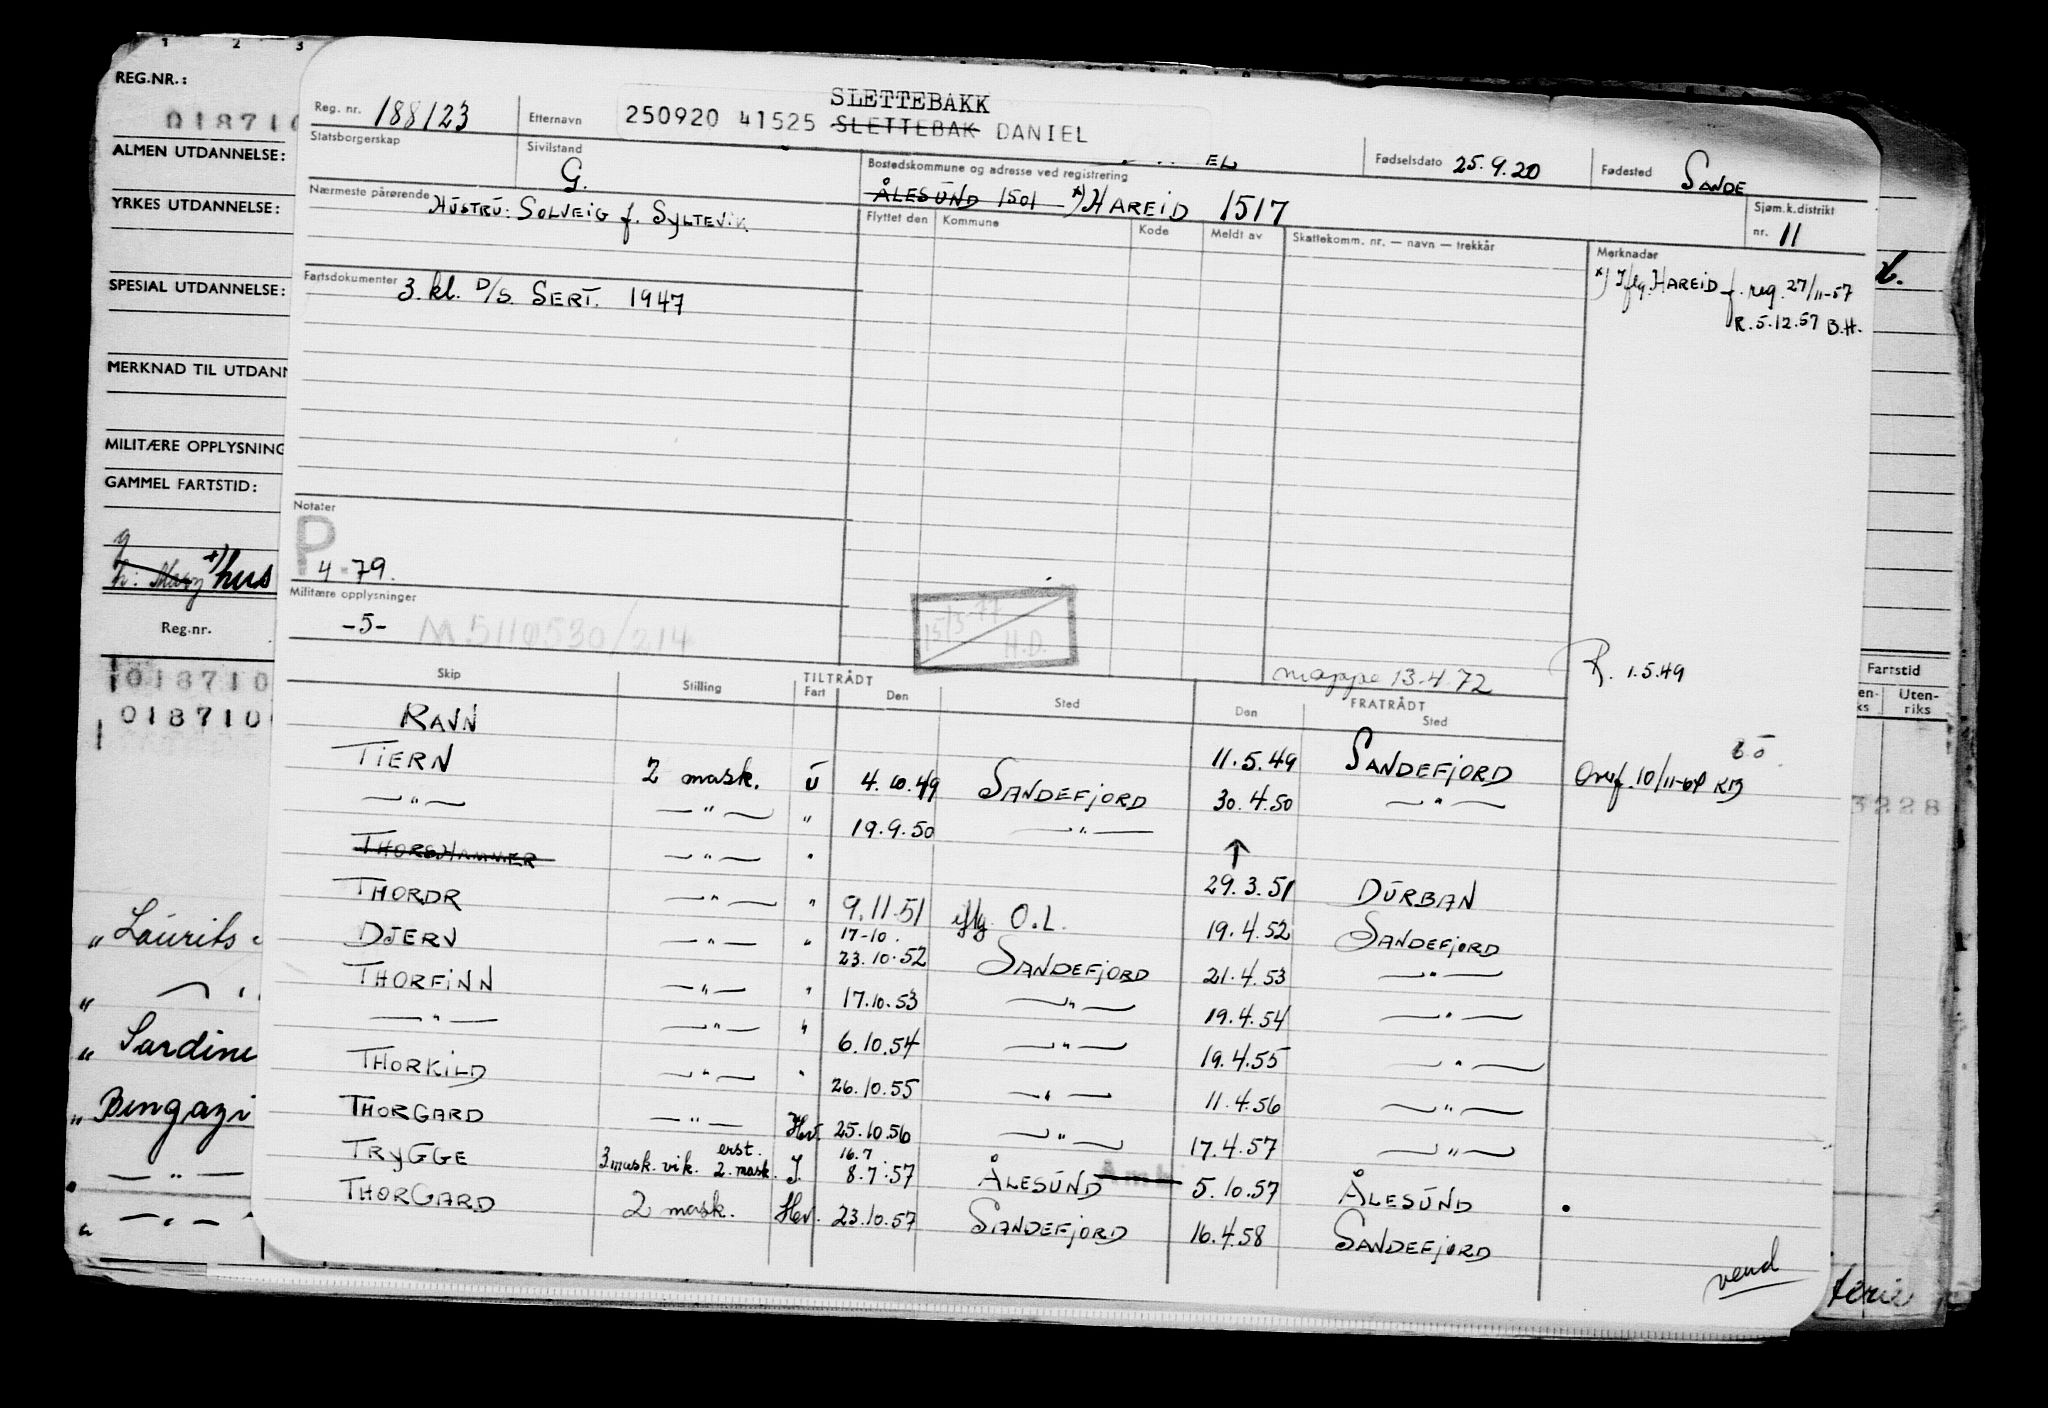 1 2 3
REG.NR.:
018710
ALMEN UTDANNELSE:
YRKES UTDANNELSE:
SPESIAL UTDANNELSE:
MERKNAD TIL UTDANN
MILITÆRE OPPLYSNING
GAMMEL FARTSTID:
hus
Reg.nr.
018710
018710
„ Laurits
„ Sardine
„ Bengazi
SLETTEBAKK
Reg. nr. 188123 Etternavn 250920 41525 SLETTEBAK DANIEL
EL Fødselsdato 25.9.20 Fødested SANDE
Statsborgerskap Sivilstand G. Bostedskommune og adresse ved registrering
ÅLESUND 1501 *) HAREID 1517
Sjøm.k.distrikt nr. 11
Nærmeste pårørende HUSTRU: SOLVEIG f. SYLTEVIK
Flyttet den Kommune Kode Meldt av Skattekomm. nr. — navn — trekkår Merknader
*) Iflg. HAREID f. reg. 27/11-57
R. 5.12.57 B.H.
Fartsdokumenter 3. kl. D/S. SERT. 1947
Notater
P
4-79.
Militære opplysninger
-5- M.5110530/214
15/3-77 H.D.
mappe 13-4-72
R. 1.5.49
Skip Stilling TILTRÅDT Fart Den Sted FRATRÅDT Den Sted
RAVN 11.5.49 SANDEFJORD
TIERN 2 mask. U 4.10.49 SANDEFJORD 30.4.50 — " — Overf. 10/11-64 KB
— " — — " — " 19.9.50 — " — ↑
THORSHAMMER — " — " 29.3.51 DURBAN
THORDR — " — " 9.11.51 iflg O.L. 19.4.52 SANDEFJORD
DJERV — " — " 17-10. 23.10.52 SANDEFJORD 21.4.53 — " —
THORFINN — " — " 17.10.53 — " — 19.4.54 — " —
— " — — " — " 6.10.54 — " — 19.4.55 — " —
THORKILD — " — " 26.10.55 — " — 11.4.56 — " —
THORGARD — " — Hv. 25.10.56 — " — 17.4.57 — " —
TRYGGE 3 mask. vik. erst. 2. mask. I. 16.7 8.7.57 ÅLESUND 5.10.57 ÅLESUND
THORGARD 2 mask. Hv. 23.10.57 SANDEFJORD 16.4.58 SANDEFJORD
vend
Fartstid
Uten-
riks
3228